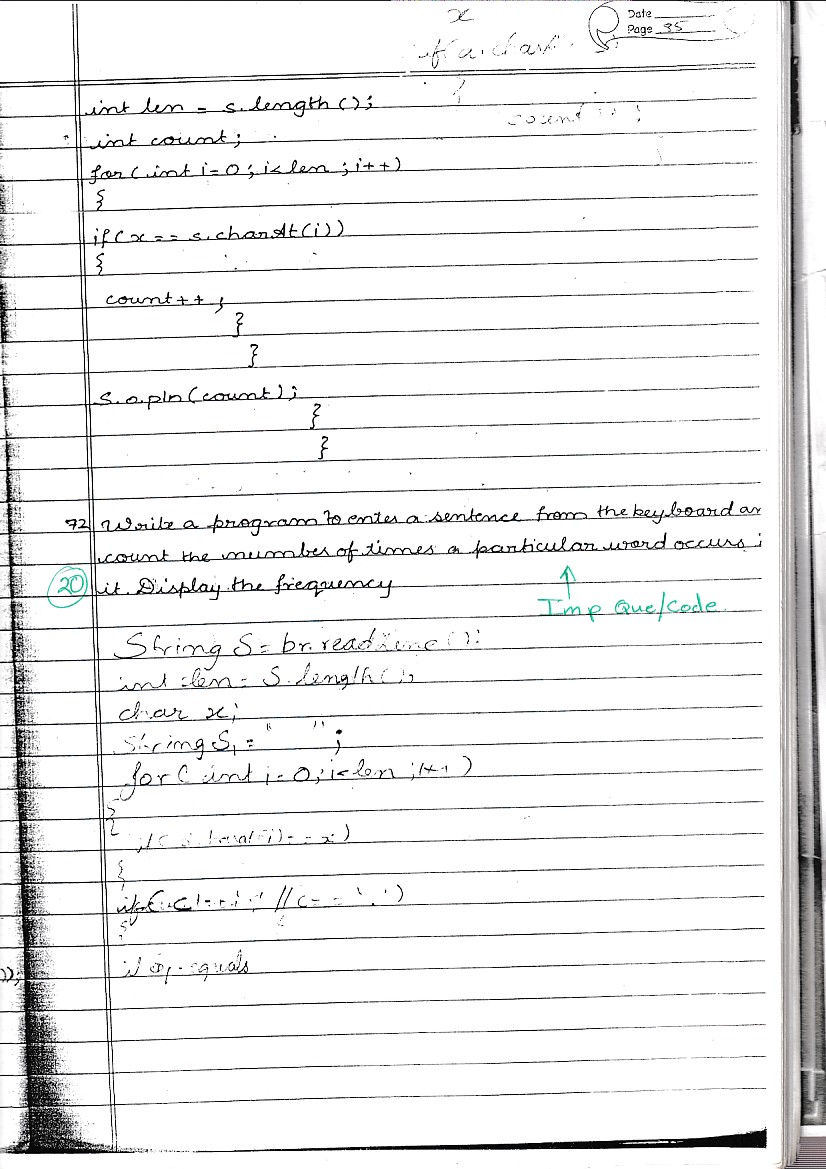 x
Date
Page 95
if a.char
{
count++;
int len = s.length();
int count;
for(int i=0; i<len; i++)
{
if(x== s.charAt(i))
{
count++;
}
}
S.o.pln(count);
}
}
72 Write a program to enter a sentence from the keyboard an
count the number of times a particular word occurs i
20 it. Display the frequency
Imp Que/Code
String S= br.readLine();
int len= S.length();
char x;
String S1 = " ";
for( int i=0; i<len ;i++)
{
{
if(
{
if equals
));